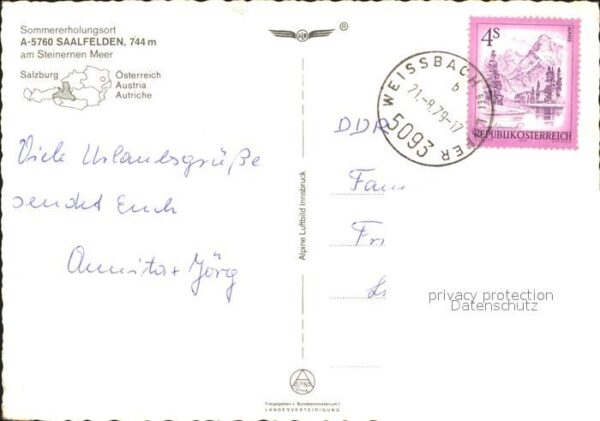 Sommererholungsort
A-5760 SAALFELDEN, 744 m
am Steinernen Meer
Salzburg
Österreich
Austria
Autriche
®
WEISSBACH BEI LOFER
b
21.-9.79-17
5093
4S
REPUBLIK ÖSTERREICH
Viele Urlaubsgrüße
sendet Euch
Annita + Jörg
DDR
Fam
Fri
Alpine Luftbild Innsbruck
privacy protection
Datenschutz
Freigegeben v. Bundesministerium f.
LANDESVERTEIDIGUNG